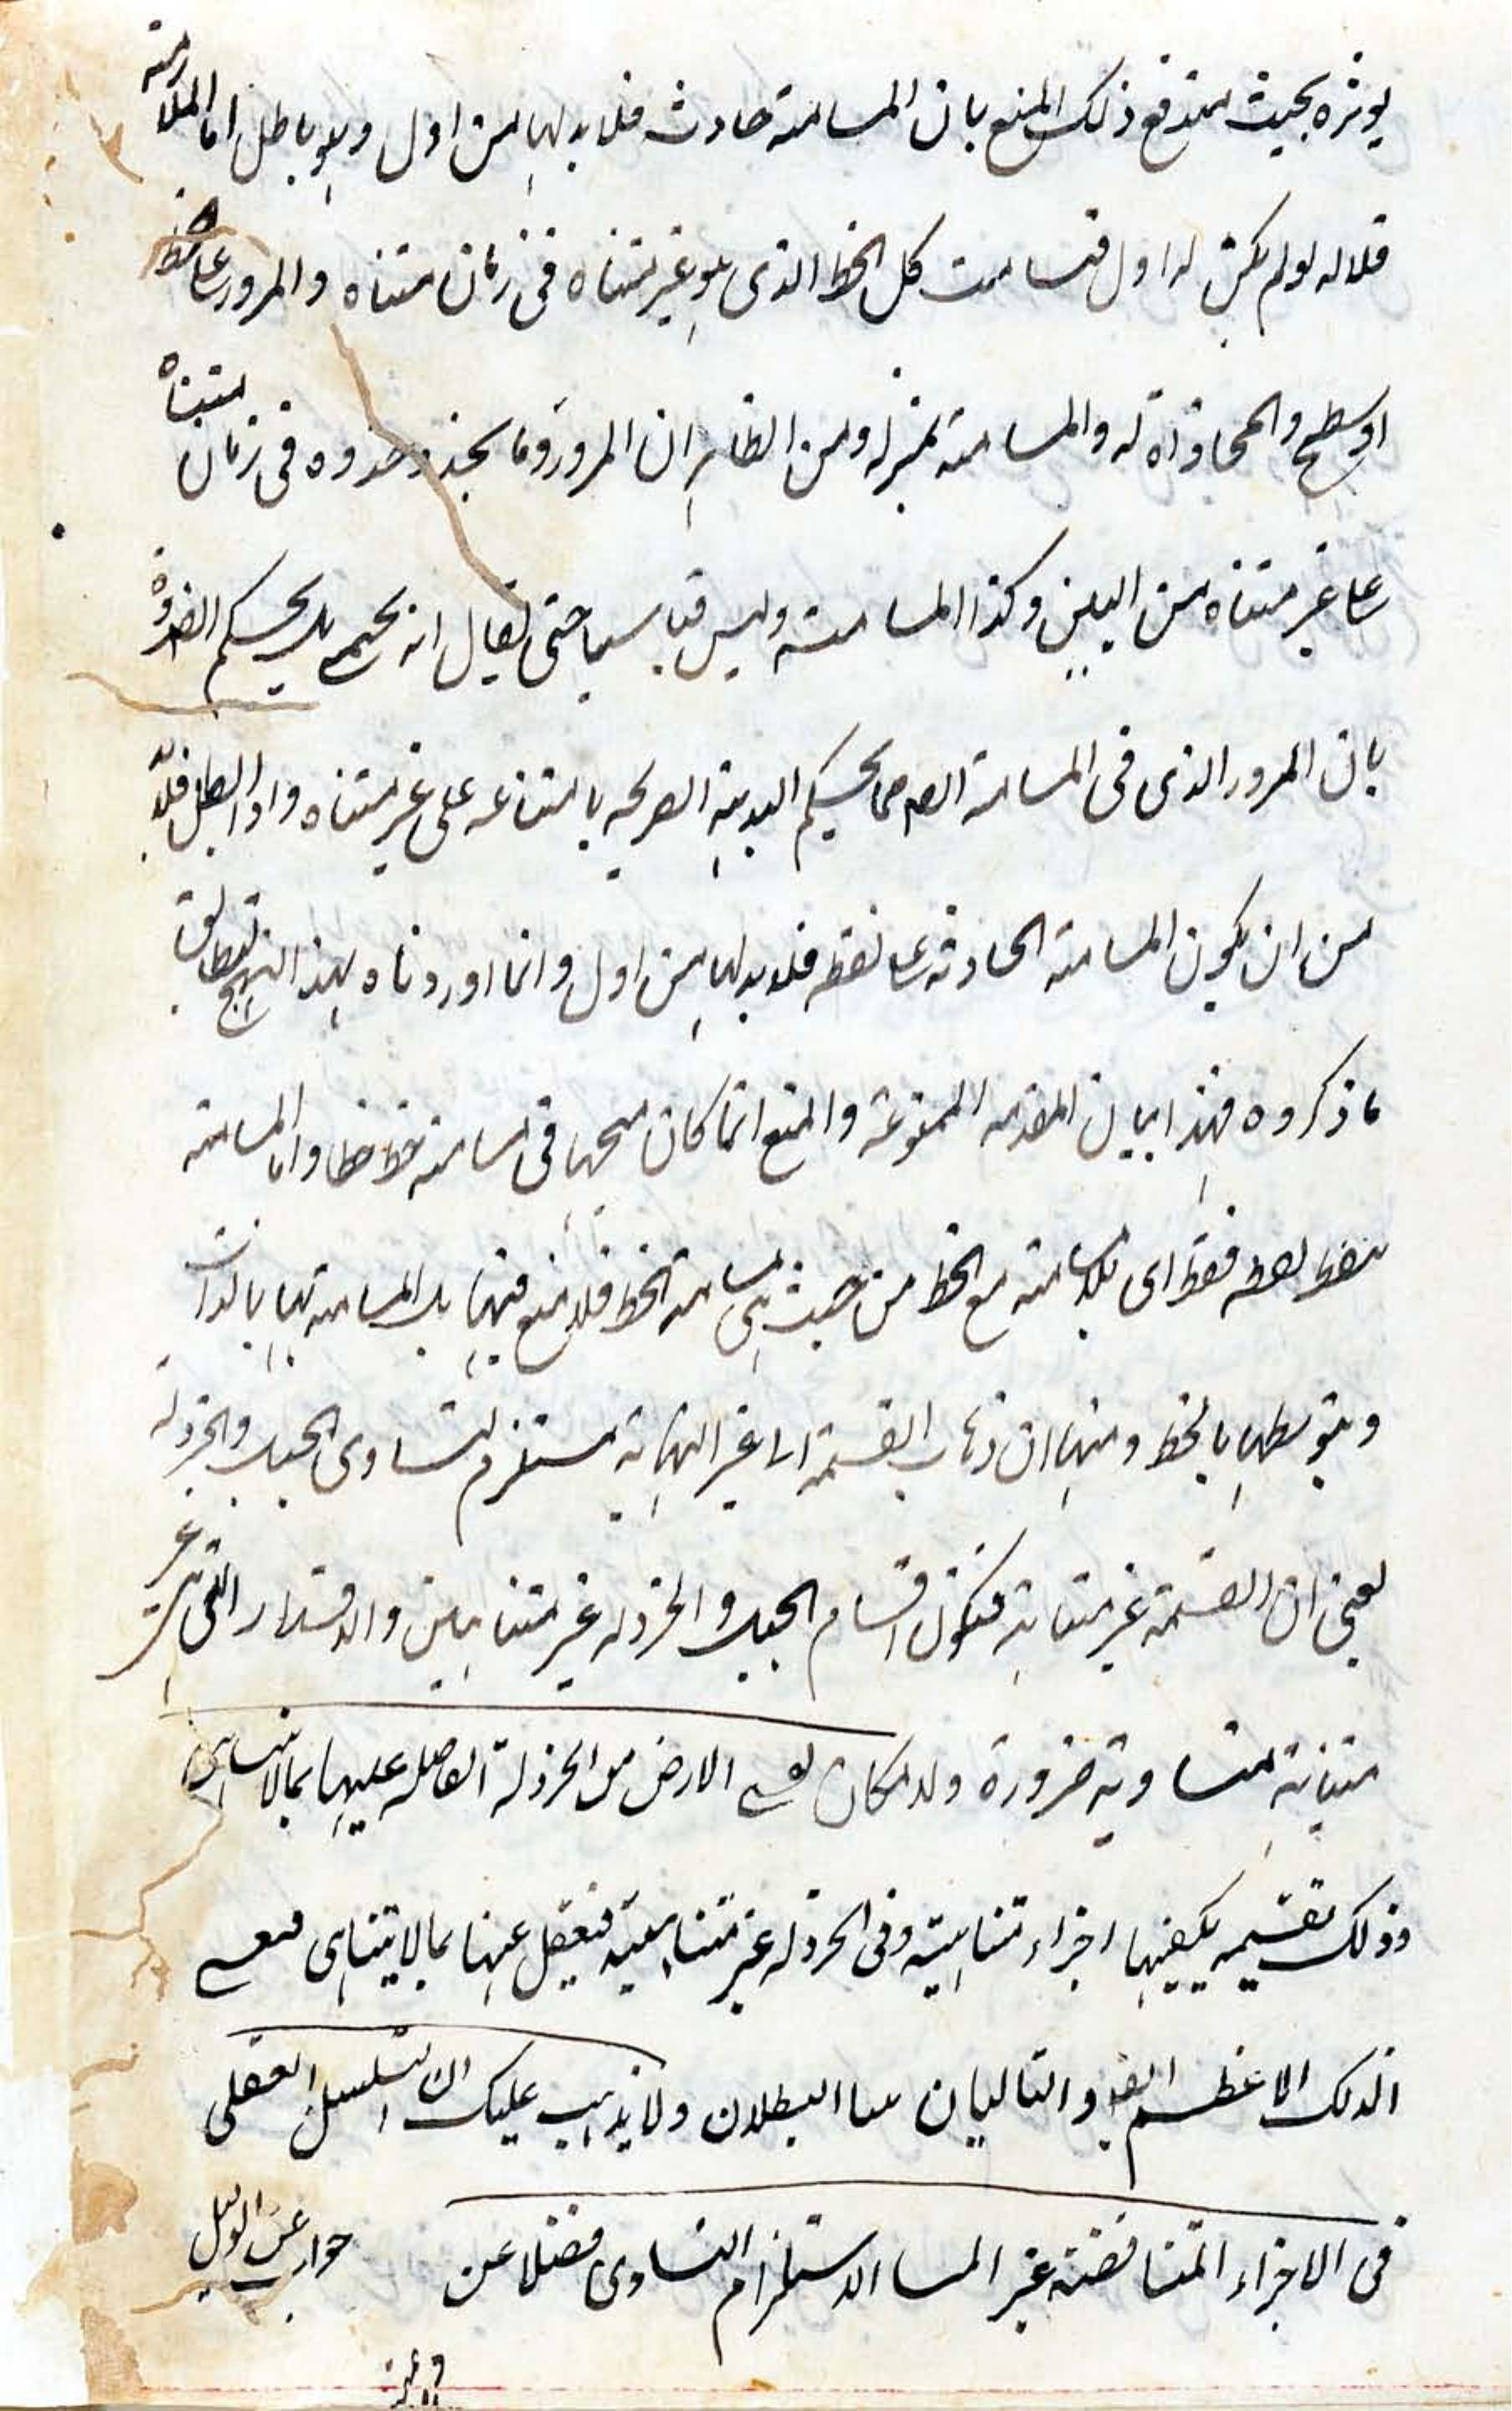 يوثره بحيث يندفع ذلك المنع بان المسامتة حادث فلا بد لها من اول وهو باطل اما الملازمة
فلانه لو لم يكن له اول فتسامت كل الخط الذى هو غير متناه فى زمان متناه والمرور على خط
او سطح والمحاذاة له والمسامتة بمنزله ومن الظاهر ان المرور وما يحذو حذوه فى زمان متناه
على غير متناه من البين وكذا المسامتة وليس قياسيا حتى يقال انه بل يحكم الضرورة
بان المرور الذى فى المسامتة ايضا مما يحكم البديهة الصريحه بامتناعه على غير متناه واذا بطل فلا بد
من ان يكون المسامتة الحادثة على نقطة فلا بد لها من اول وانما اوردناه بهذا النهج ليطابق
ما ذكروه فهذا بيان المقدمه الممنوعة والمنع انما كان متجها فى مسامتة خط خطا واما المسامتة
نقطة فقط اى بلا مسامتة مع الخط من حيث هى مسامتة الخط فلا منع فيها بل المسامتة لها بالذات
وبتوسطها بالخط ومنها ان ذهاب القسمة الى غير النهاية مستلزم لتساوى الجبل والخردلة
يعنى ان القسمة غير متناهية فتكون اقسام الجبل والخردله غير متناهيين والاقدار التى هى غير
متناهية متساوية ضرورة ولامكان الارض من الخردلة الفاضله عليها بما لا يتناهى
وذلك تقسيمه يكفيها اجزاء متناهية وفى الخردله غير متناهية فيفضل عنها بما لا يتناهى
الفلك الاعظم ايضا والتاليان البطلان ولا يذهب عليك ان التسلسل العقلى
فى الاجزاء المتناقضة غير الاستلزام التساوى فضلا عن
جواب عن الدليل